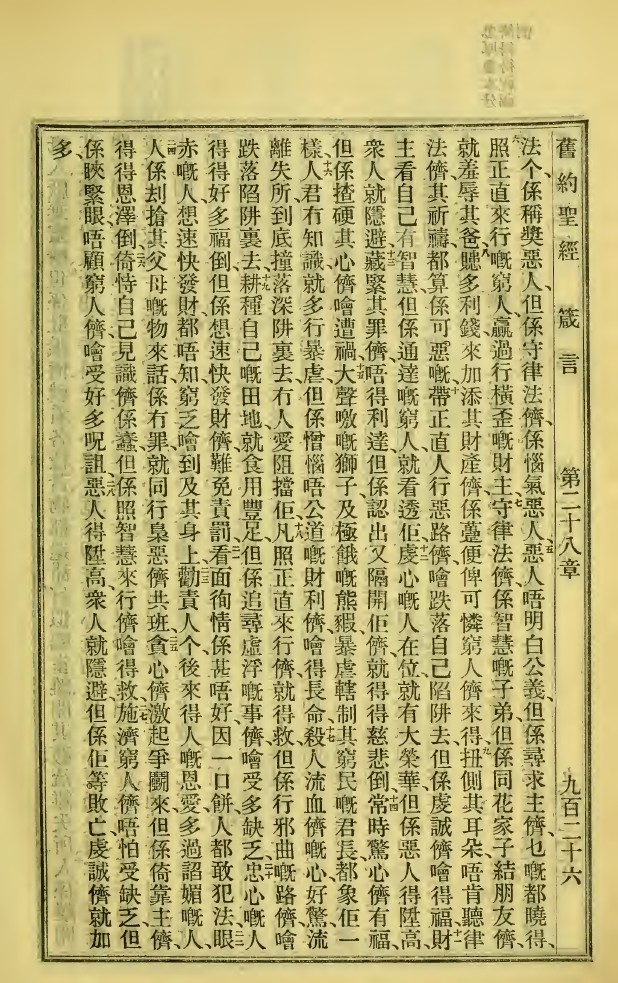 舊約聖經 箴言 第二十八章 九百二十六
法个、係稱獎惡人、但係守律法儕、係惱氣惡人、五惡人唔明白公義、但係尋求主儕、乜嘅都曉得、
六照正直來行嘅窮人、贏過行橫歪嘅財主、七守律法儕、係智慧嘅子弟、但係同花家子結朋友儕、
就羞辱其爸、八賺多利錢、來加添其財產儕、係躉便俾可憐窮人儕來得、九扭側其耳朵、唔肯聽律
法儕、其祈禱都算係可惡嘅、十帶正直人行惡路儕、噲跌落自己陷阱去、但係虔誠儕、噲得福、十一財
主看自己有智慧、但係通達嘅窮人、就看透佢、十二虔心嘅人在位、就有大榮華、但係惡人得陞高、
衆人就隱避、十三藏緊其罪儕、唔得利達、但係認出又隔開佢儕、就得得慈悲倒、十四常時驚心儕有福、
但係揸硬其心儕、噲遭禍、十五大聲噭嘅獅子、及極餓嘅熊、豭暴虐轄制其窮民嘅君長、都象佢一
樣、十六人君冇知識、就多行暴虐、但係憎惱唔公道嘅財利儕、噲得長命、十七殺人流血儕嘅心好驚、流
離失所、到底撞落深阱裏去、冇人愛阻擋佢、十八凡照正直來行儕、就得救、但係行邪曲嘅路儕、噲
跌落陷阱裏去、十九耕種自己嘅田地、就食用豐足、但係追尋虛浮嘅事儕、噲受多缺乏、二十忠心嘅人
得得好多福倒、但係想速快發財儕、難免責罰、二一看面徇情、係甚唔好、因一口餅、人都敢犯法、二二眼
赤嘅人、想速快發財、都唔知窮乏噲到及其身上、二三勸責人个、後來得人嘅恩愛、多過諂媚嘅人、
二四人係刦搶其父母嘅物、來話係冇罪、就同行梟惡儕共班、二五貪心儕、激起爭鬭來、但係倚靠主儕、
得得恩澤倒、二六倚恃自己見識儕、係蠢、但係照智慧來行儕、噲得救、二七施濟窮人儕、唔怕受缺乏、但
係䀹緊眼、唔顧窮人儕、噲受好多呪詛、二八惡人得陞高、衆人就隱避、但係佢等敗亡、虔誠儕就加
多、